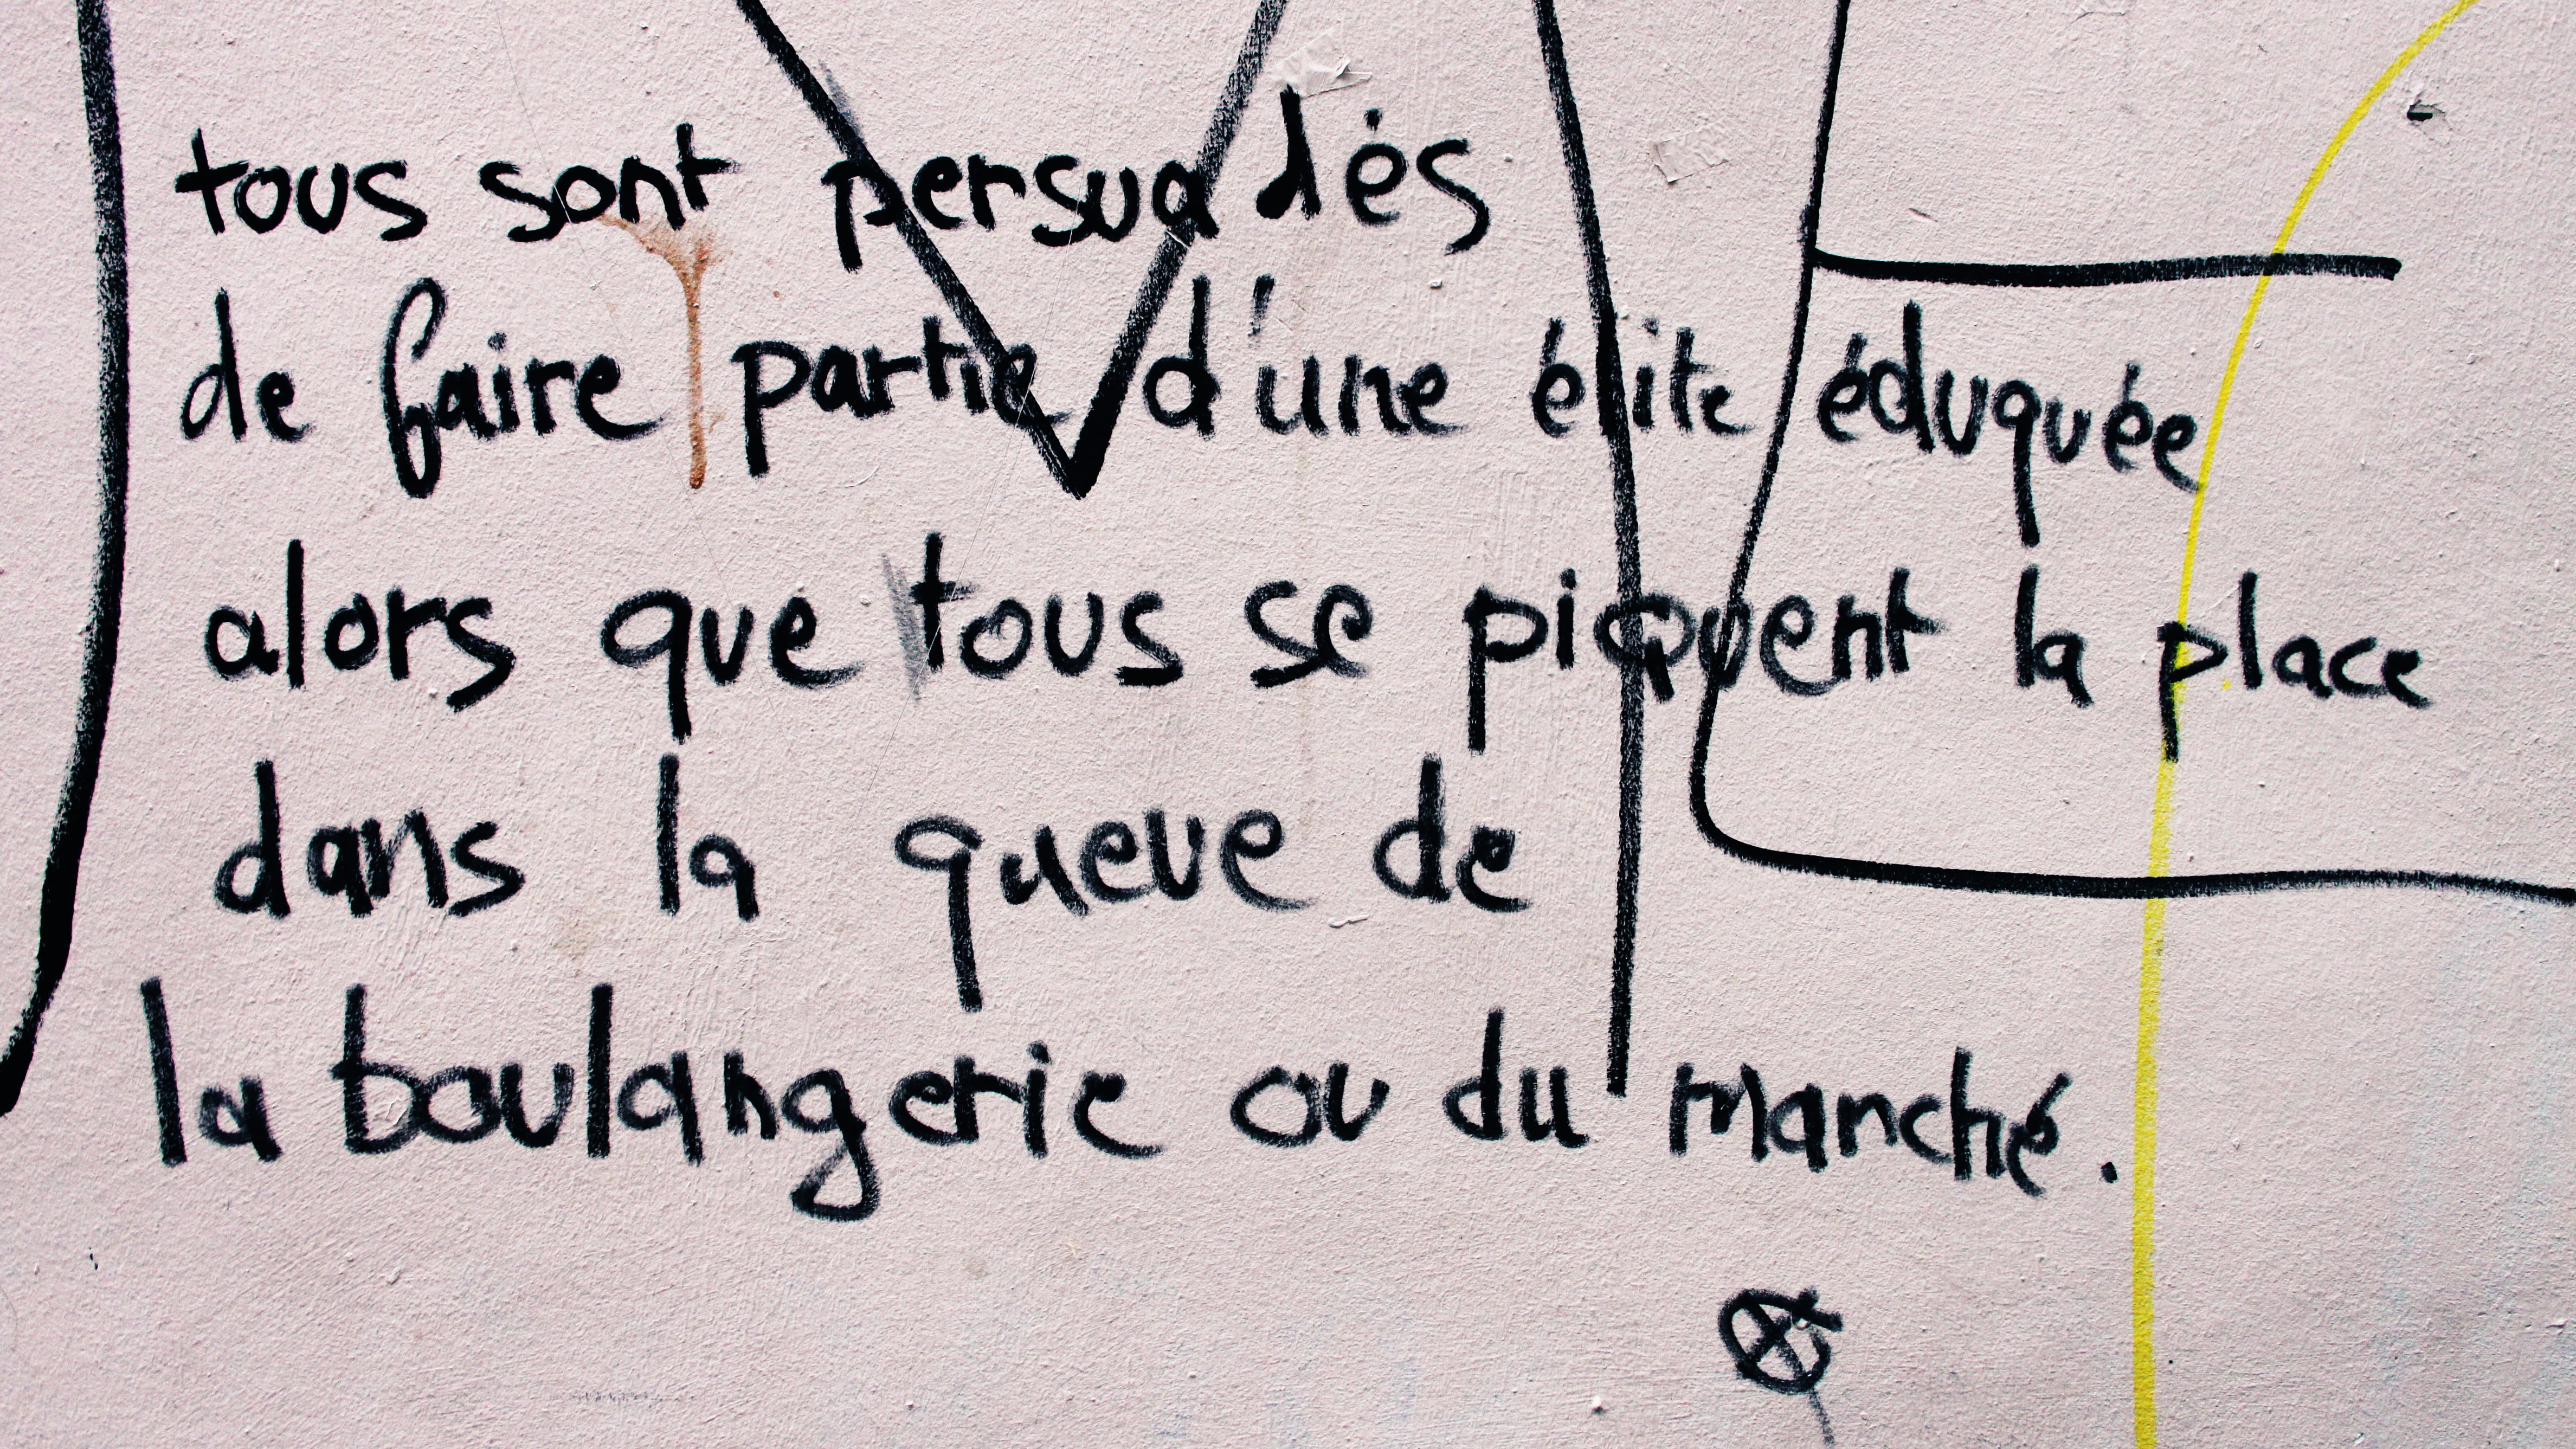 tous sont persuadés
de faire partie d'une élite éduquée
alors que tous se piquent la place
dans la queue de
la boulangerie ou du marché.